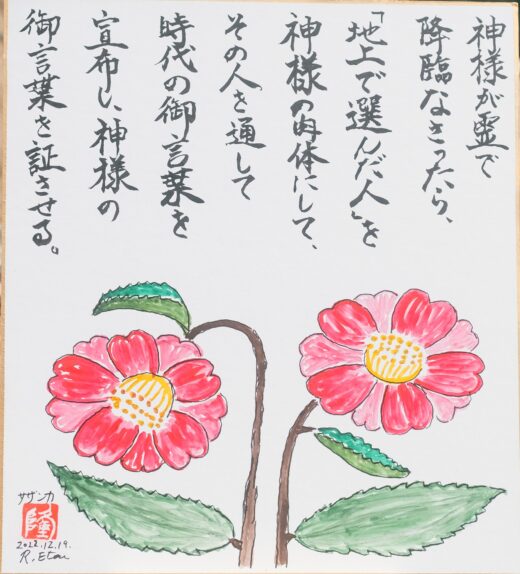 神様が霊で
降臨なさったら、
「地上で選んだ人」を
神様の肉体にして、
その人を通して
時代の御言葉を
宣布し、神様の
御言葉を証させる。
サザンカ
隆
2022.12.19.
R. Etou